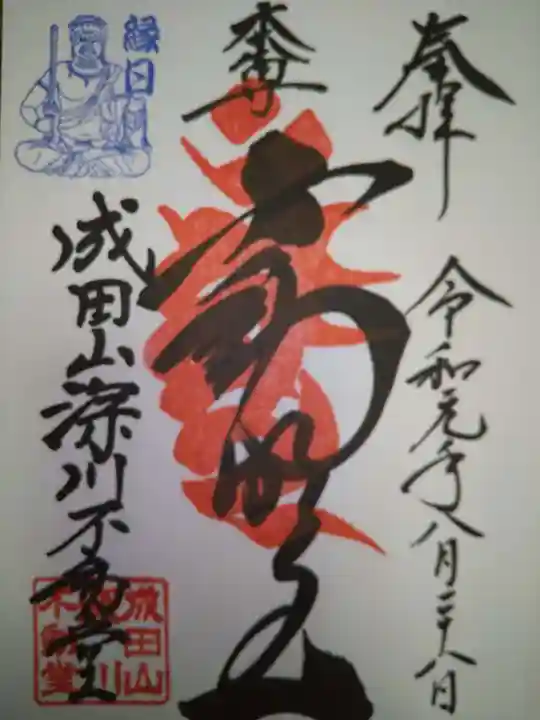 奉拝
令和元年八月二十八日
本尊
不動明王
成田山深川不動堂
縁日
成田山
深川
不動堂